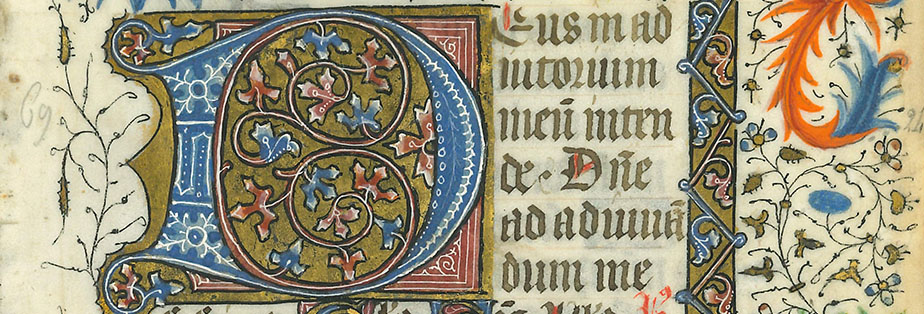 Deus in ad
iutorium
meū inten
de. Dn̄e
ad adiuuā
dum me
69